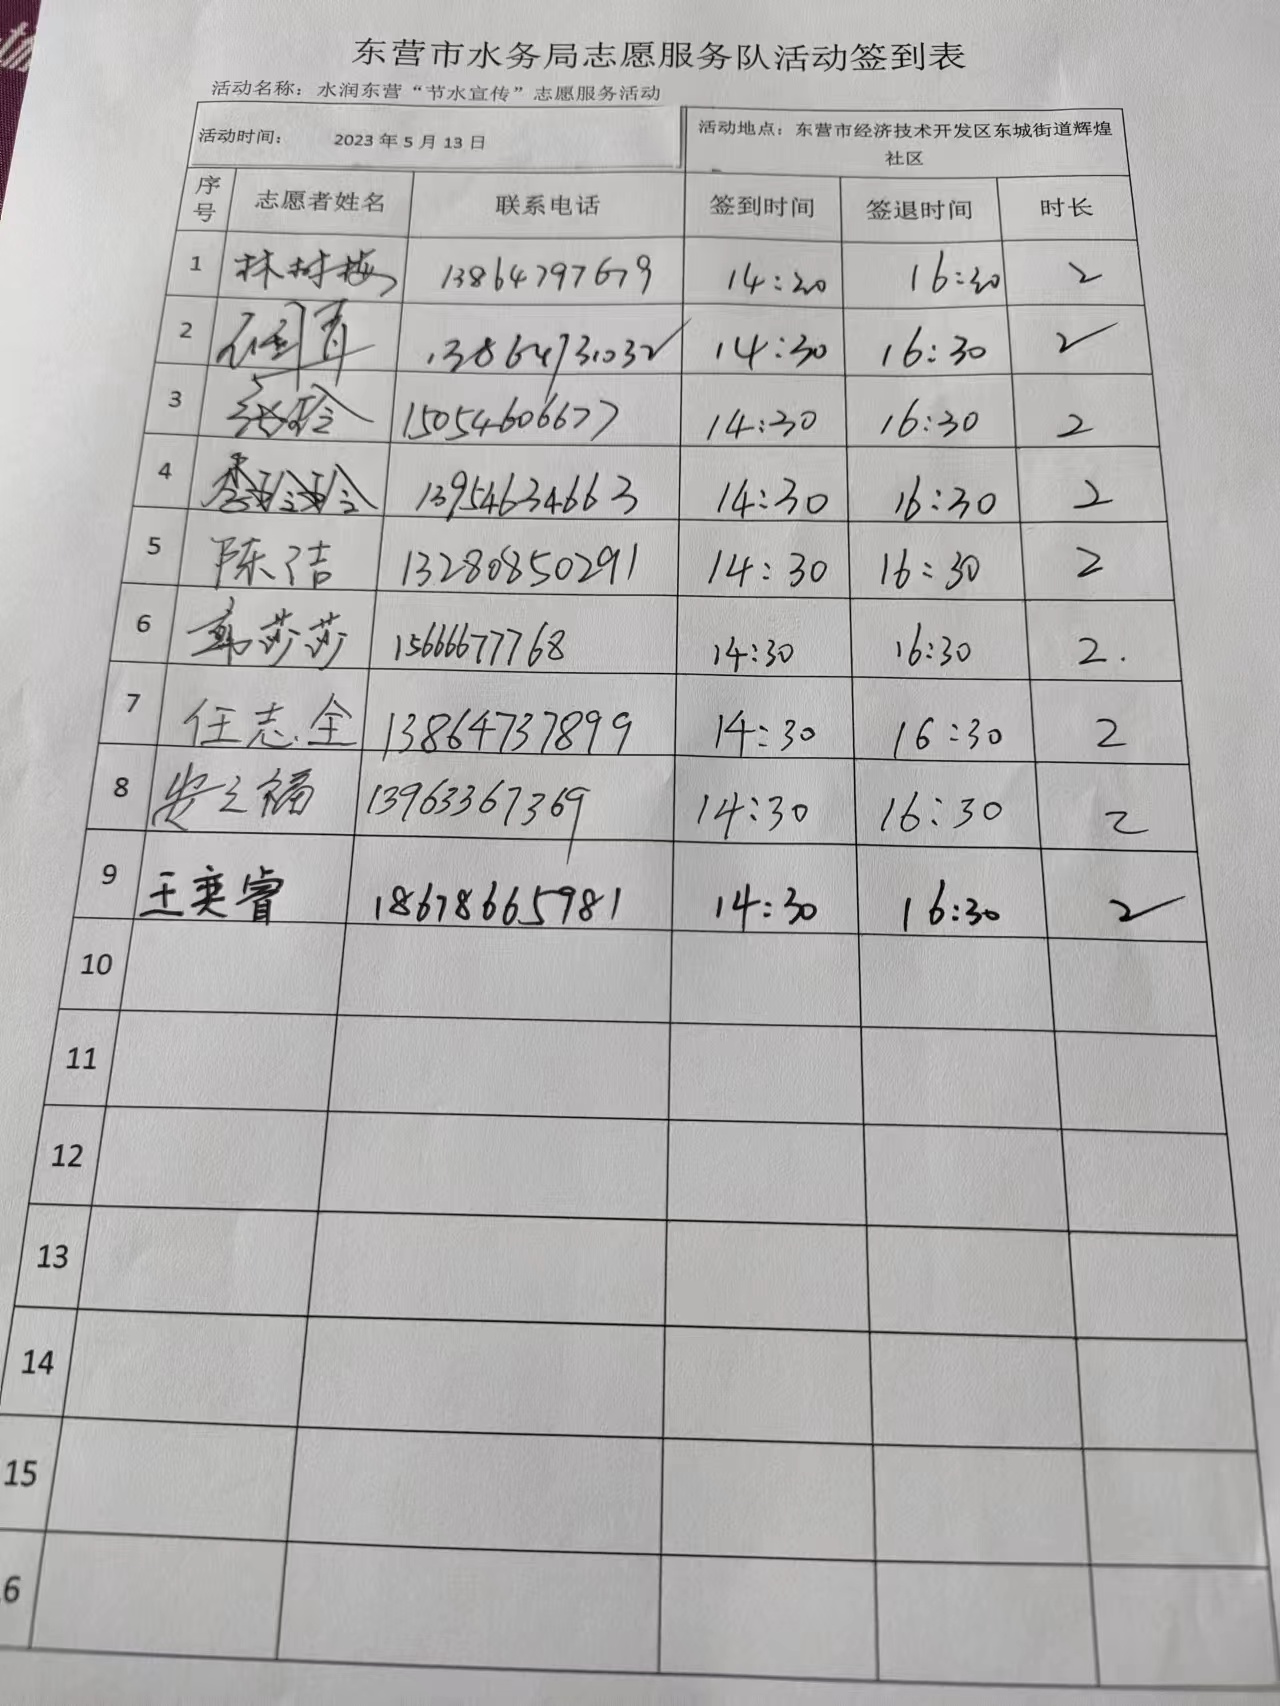 东营市水务局志愿服务队活动签到表
活动名称：水润东营“节水宣传”志愿服务活动
活动时间： 2023 年 5 月 13 日 活动地点：东营市经济技术开发区东城街道辉煌
社区
序号 志愿者姓名 联系电话 签到时间 签退时间 时长
1 林树梅 13864797679 14:20 16:20 2
2 13864731032 14:30 16:30 2
3 15054606677 14:30 16:30 2
4 13954634663 14:30 16:30 2
5 陈洁 13280850291 14:30 16:30 2
6 郭莎莎 15666677768 14:30 16:30 2.
7 任志全 13864737899 14:30 16:30 2
8 安之福 13963367369 14:30 16:30 2
9 王奕睿 18678665981 14:30 16:30 2
10
11
12
13
14
15
6